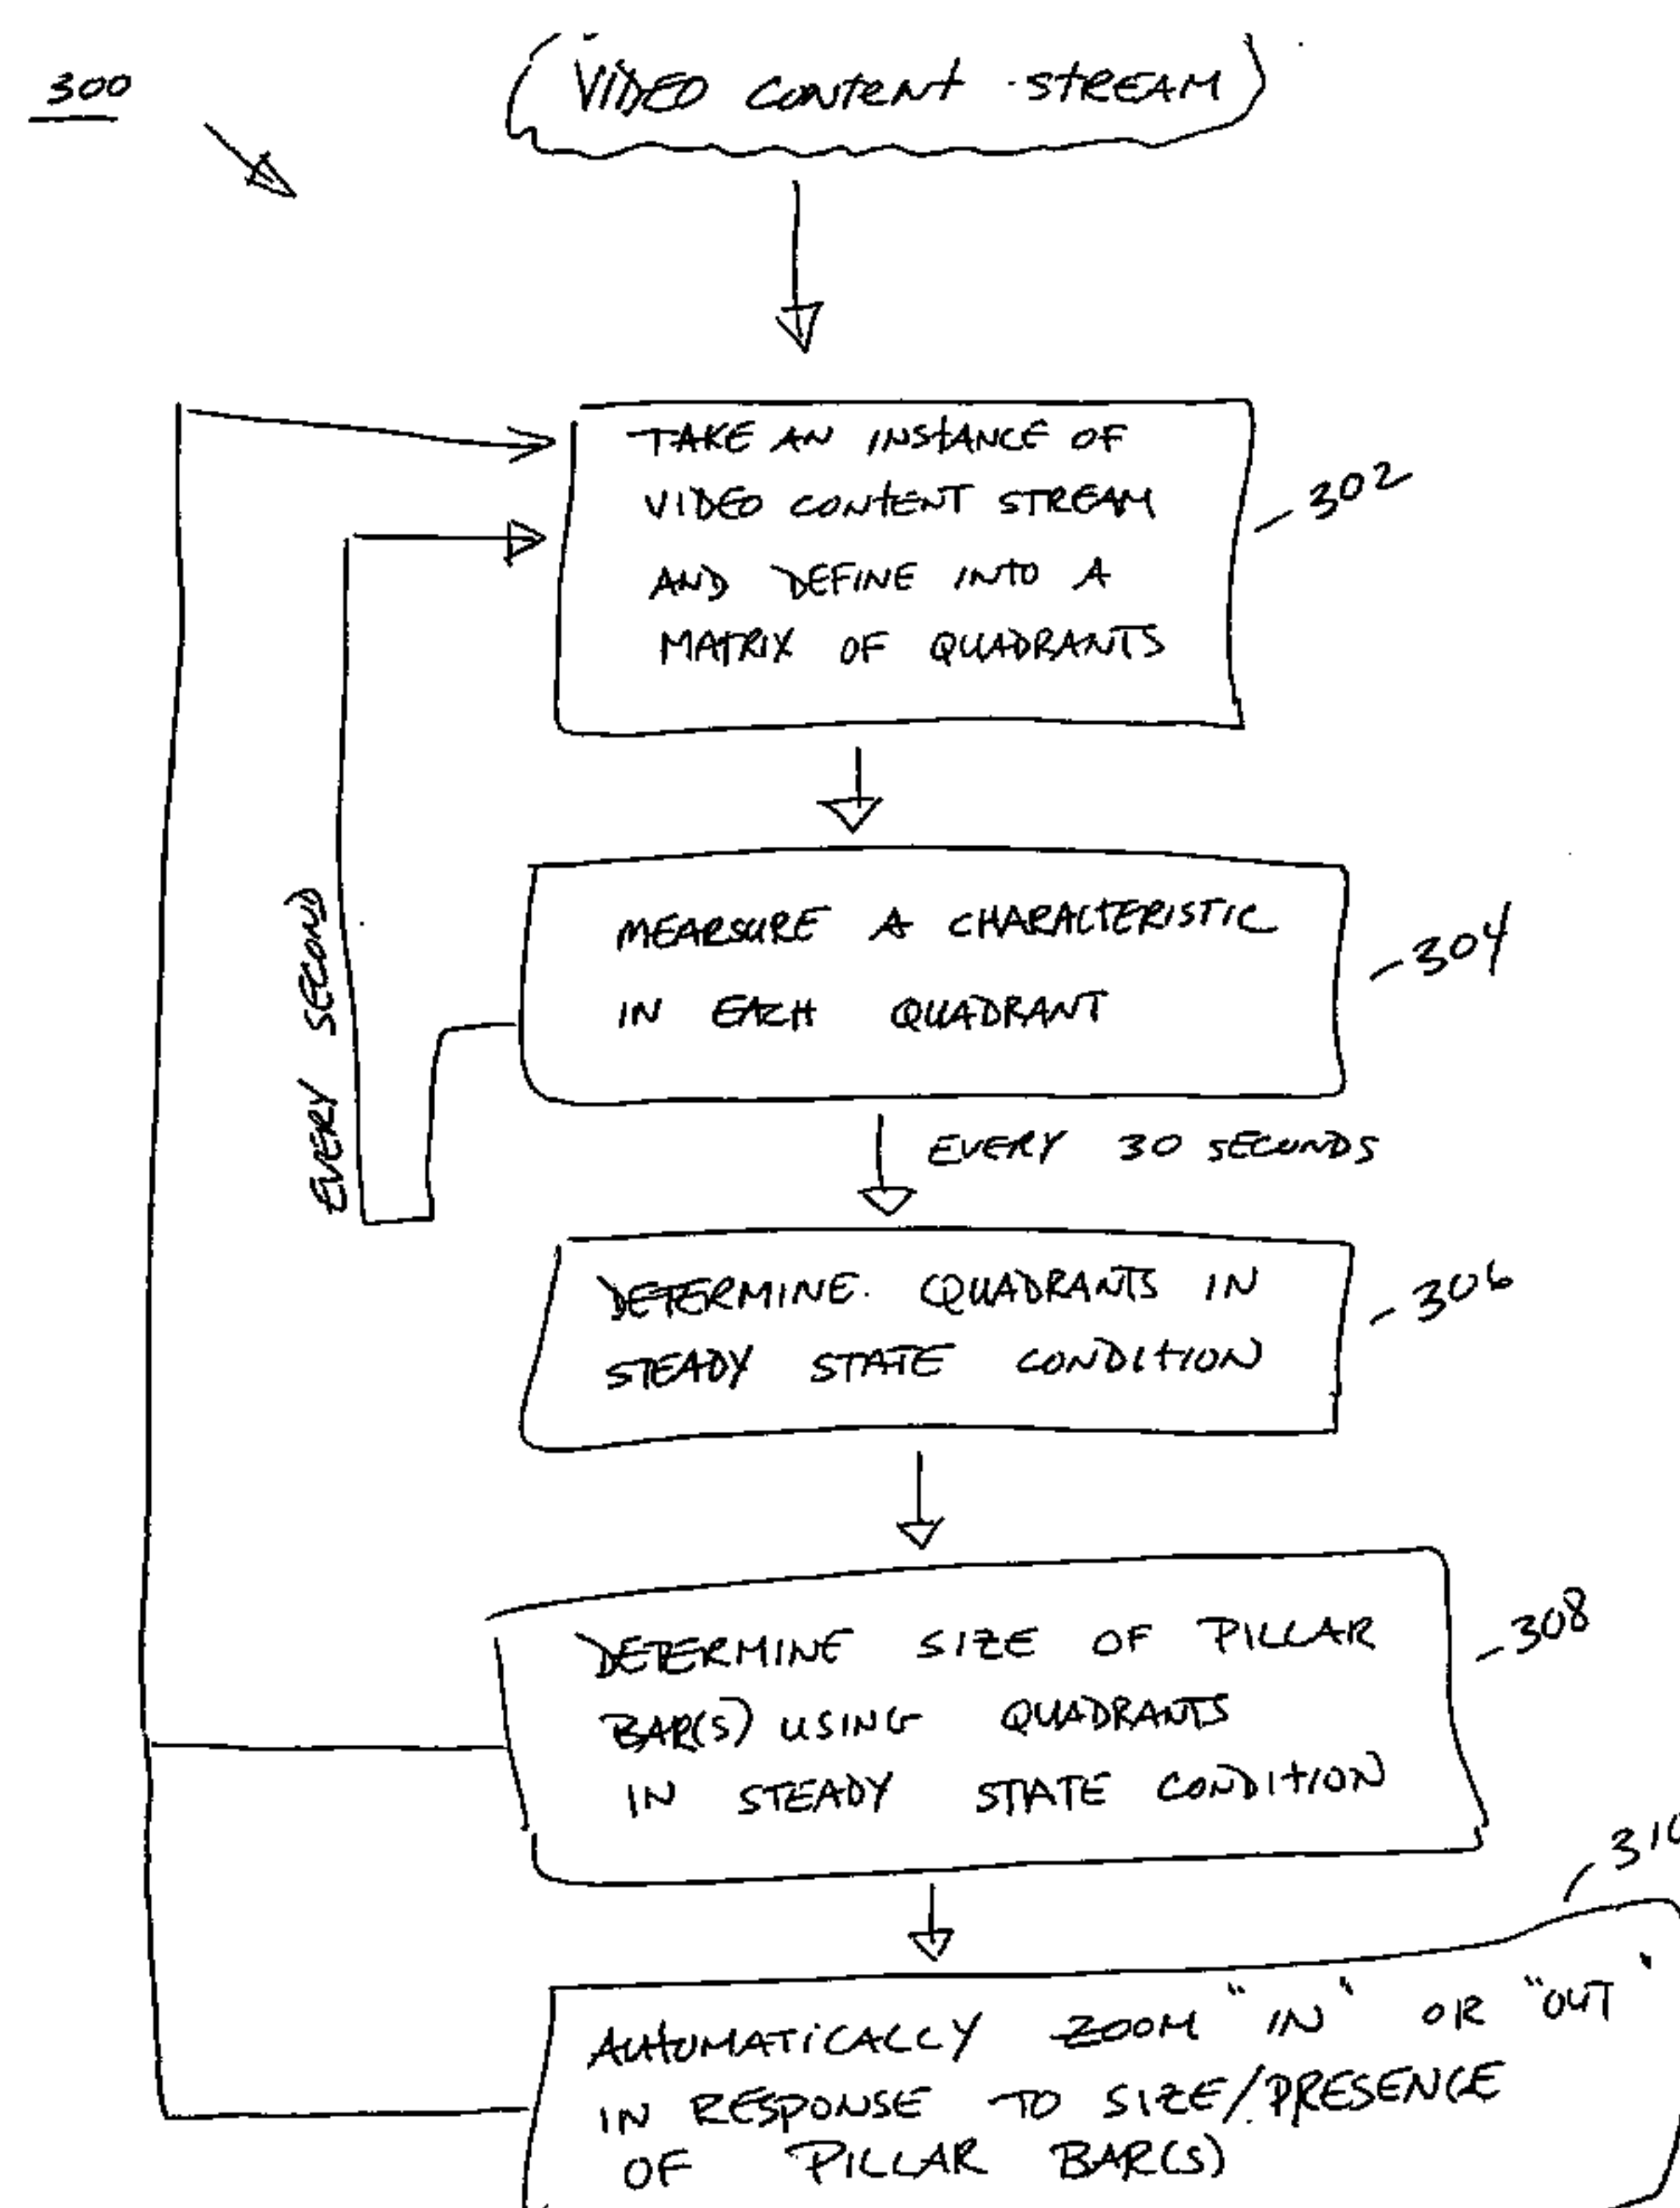 300
VIDEO CONTENT STREAM
TAKE AN INSTANCE OF
VIDEO CONTENT STREAM
AND DEFINE INTO A
MATRIX OF QUADRANTS
302
MEARSURE A CHARACTERISTIC
IN EACH QUADRANT
304
EVERY SECOND
EVERY 30 SECONDS
DETERMINE QUADRANTS IN
STEADY STATE CONDITION
306
DETERMINE SIZE OF PILLAR
BAR(S) USING QUADRANTS
IN STEADY STATE CONDITION
308
310
AUTOMATICALLY ZOOM "IN" OR "OUT"
IN RESPONSE TO SIZE/PRESENCE
OF PILLAR BAR(S)